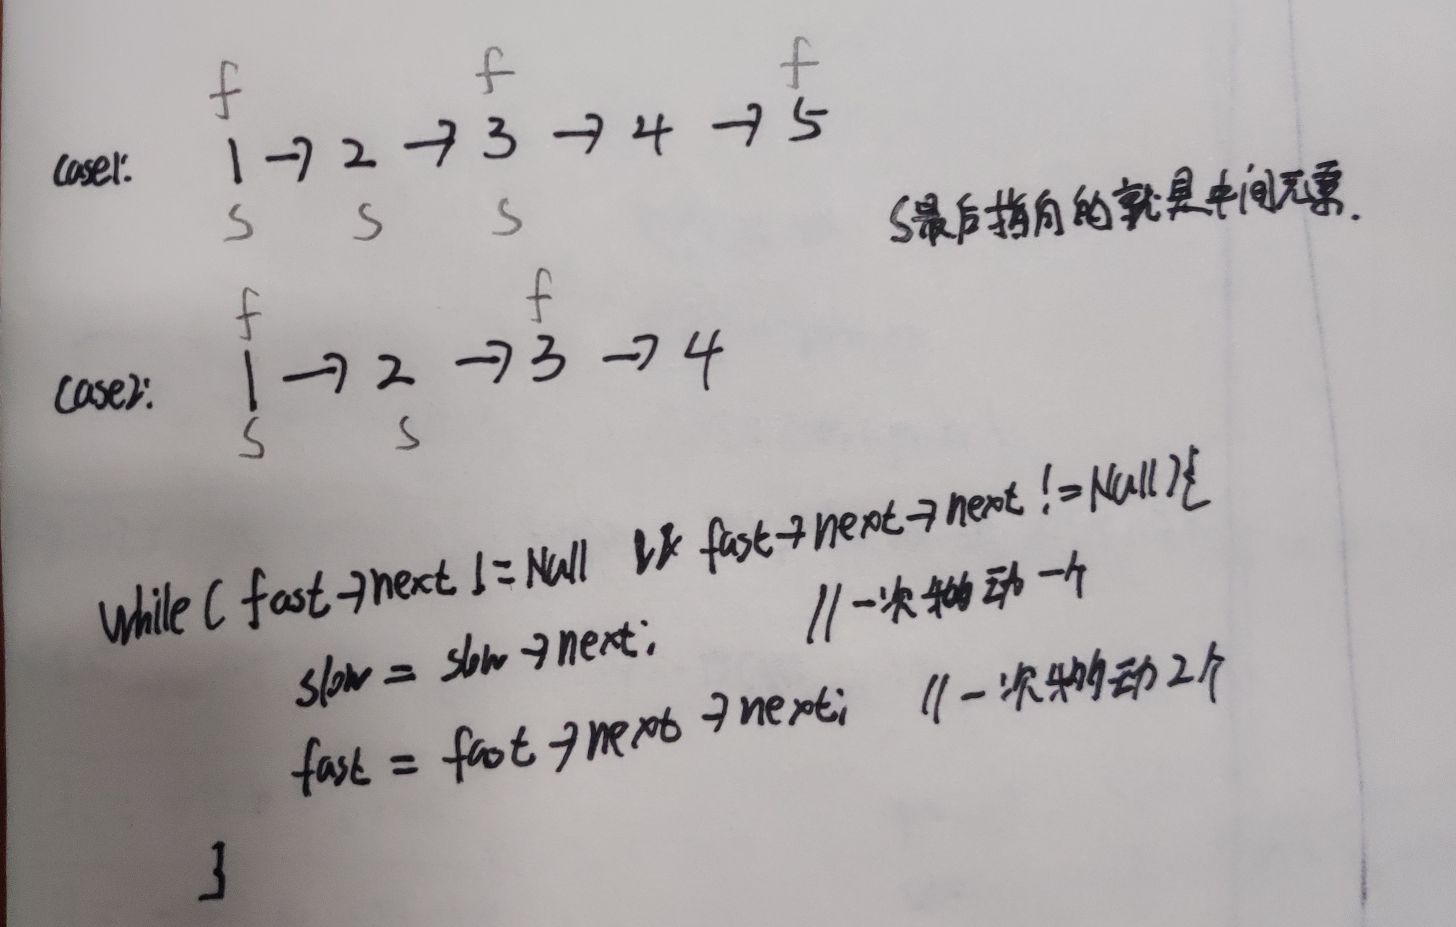 f f f
case1: 1 → 2 → 3 → 4 → 5
s s s
S最后指向的就是中间元素.
f f
case2: 1 → 2 → 3 → 4
s s
while ( fast→next != Null && fast→next→next != Null ){
slow = slow→next; //一次移动一个
fast = fast→next→next; //一次移动2个
}